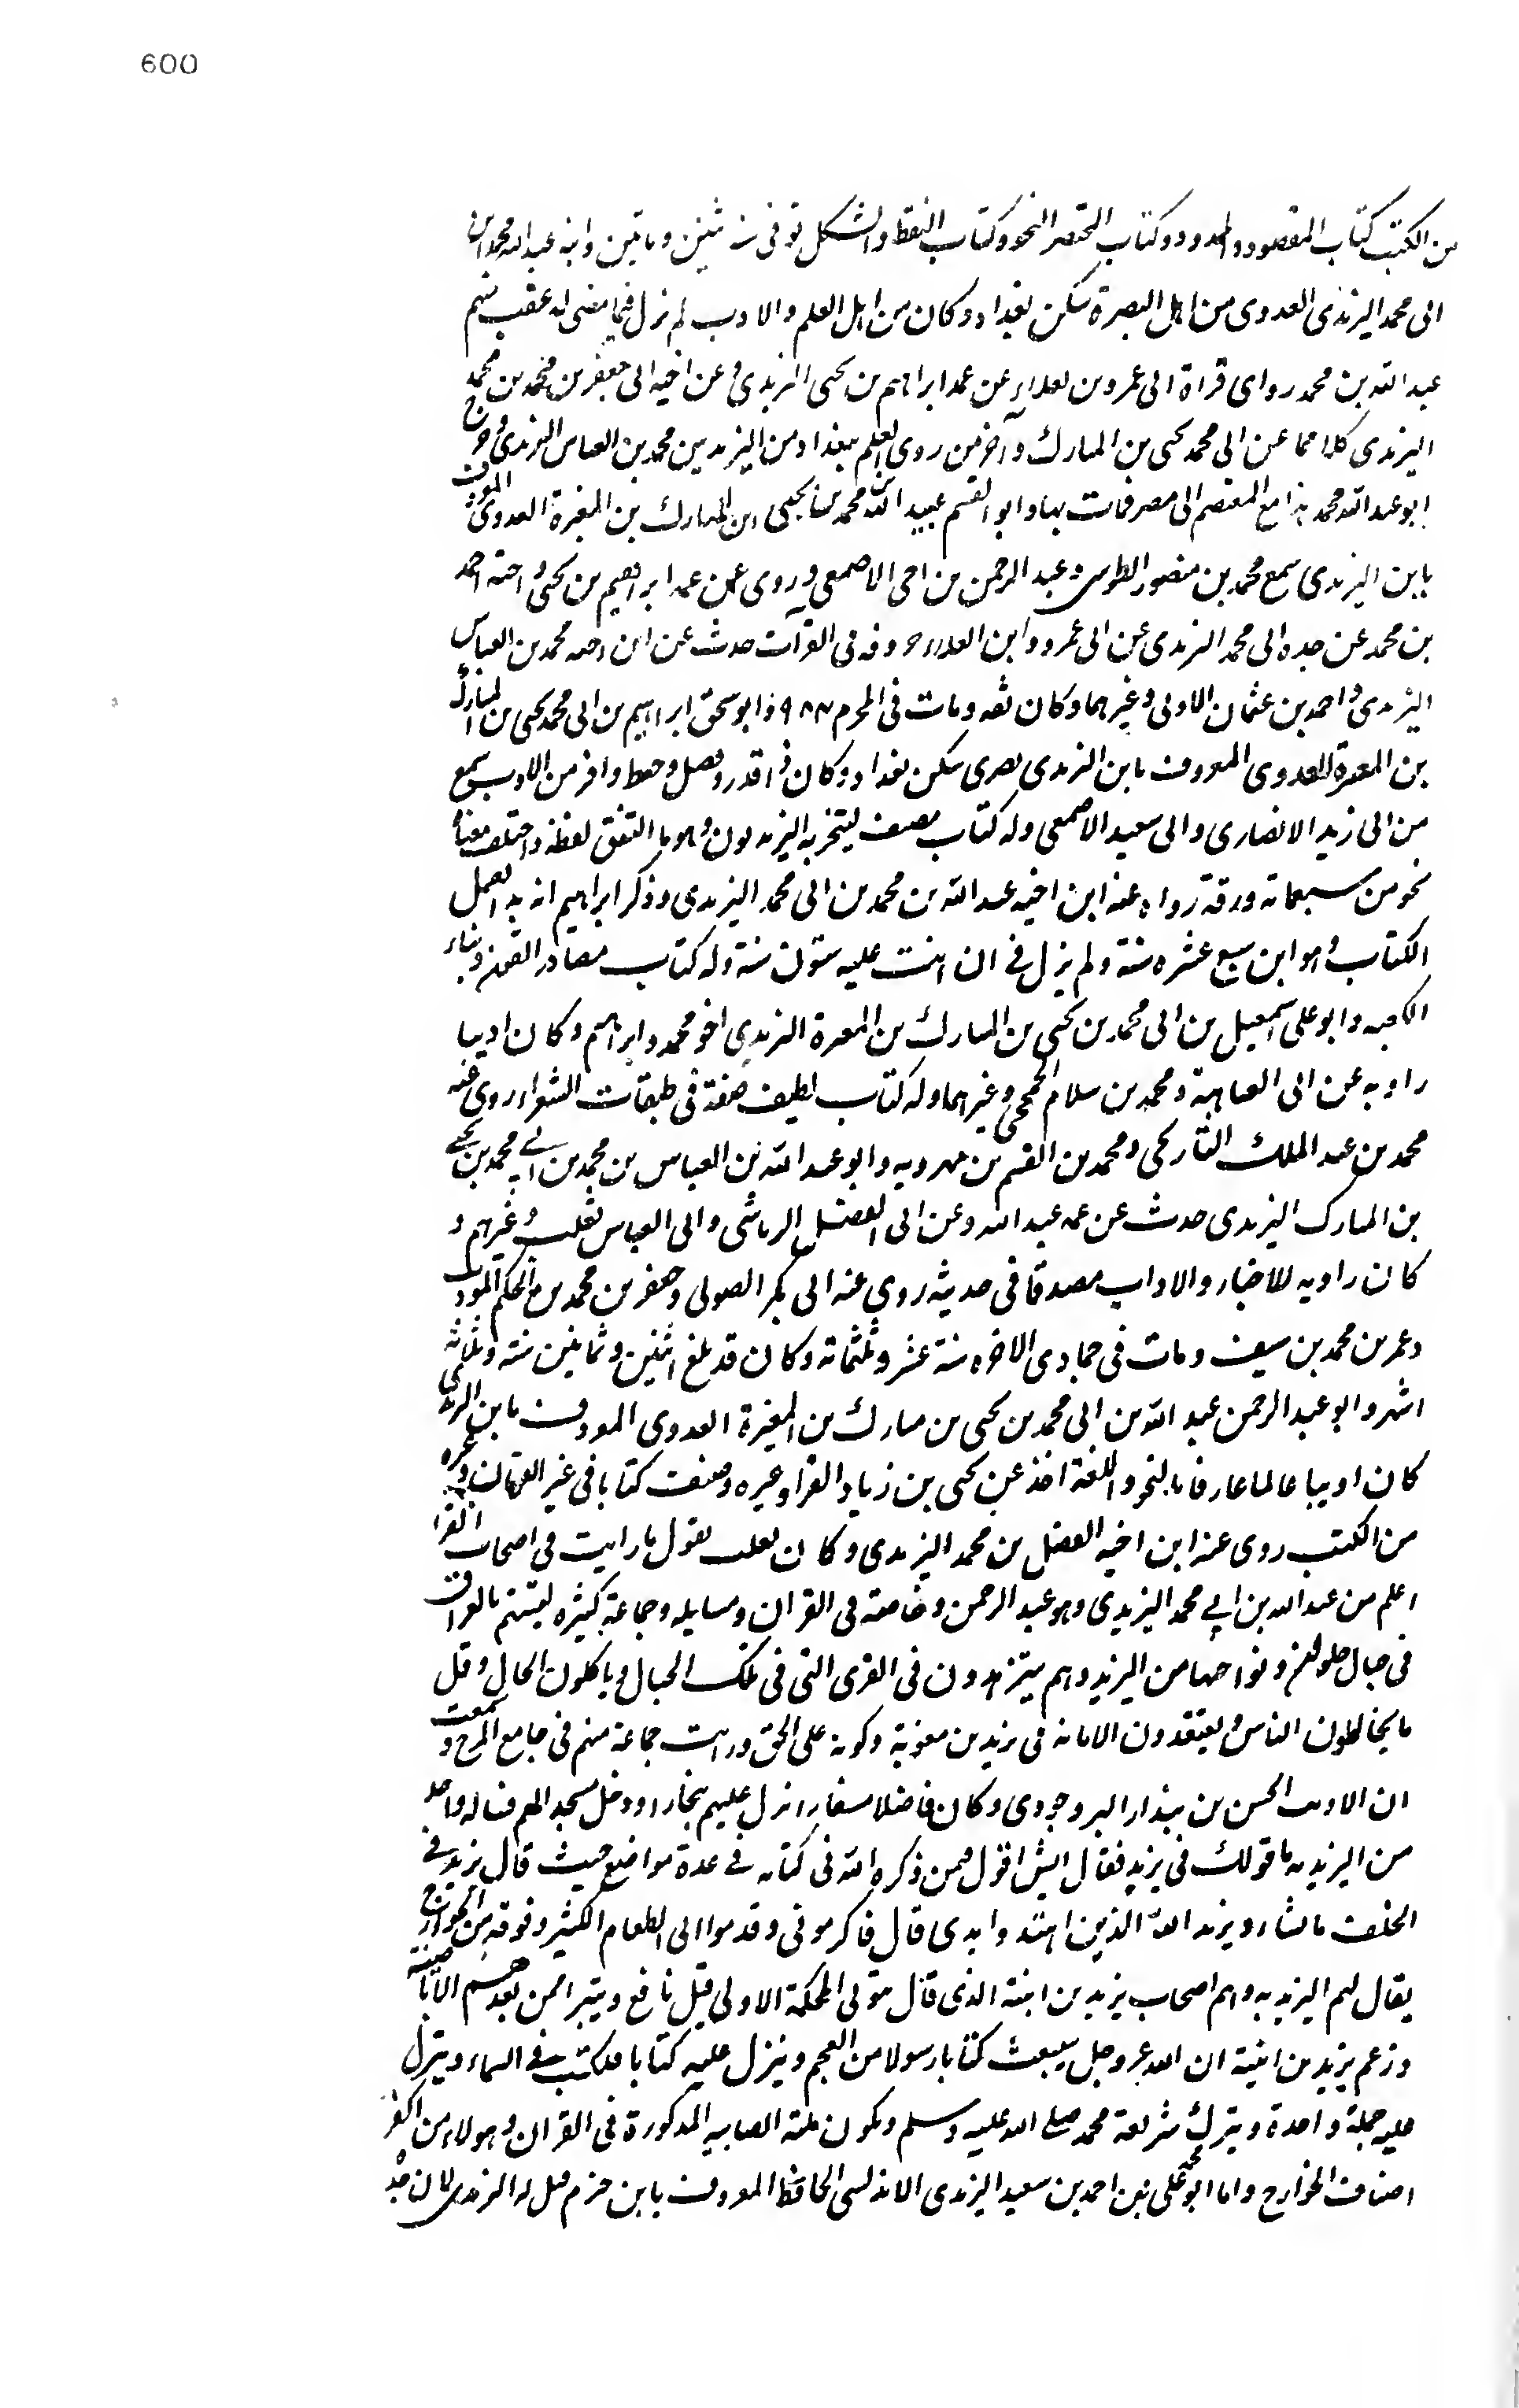 600
من الكتب كتاب المقصور والممدود وكتاب المختصر النحو وكتاب النقط والشكل توفى سنة ثنتين ومايتين وابنه عبد الله محمد بن
ابى محمد اليزيدى العدوى من اهل البصرة سكن بغداد وكان من اهل العلم والادب لم نزل فيما مضى له عقب منهم
عبد الله بن محمد روى قراة ابى عمرو بن العلاء عن عمه ابراهيم بن يحيى اليزيدى وعن اخيه ابى جعفر بن محمد بن محمد
اليزيدى كلاهما عن ابى محمد يحيى بن المبارك وآخر من روى العلم ببغداد من اليزيديين محمد بن العباس اليزيدى وخرج
ابو عبد الله محمد هذا مع المعتصم الى مصر فمات بها وابو القسم عبيد الله بن محمد بن يحيى ابن المبارك بن المغيرة العدوى المعروف
بابن اليزيدى سمع محمد بن منصور الطوسى وعبد الرحمن بن اخى الاصمعى وروى عن عمه ابراهيم بن يحيى واخيه احمد
بن محمد عن جده ابى محمد اليزيدى عن ابى عمرو وابن العلاء حروفه فى القرآت حدث عن ابن اخيه محمد بن العباس
اليزيدى واحمد بن عثمان الادمى وغيرهما وكان ثقه ومات فى المحرم وابو سحق ابراهيم بن ابى محمد يحيى بن المبارك
بن المغيرة العدوى المعروف بابن اليزيدى بصرى سكن بغداد وكان ذا قدر وفضل وحظ وافر من الادب سمع
من ابى زيد الانصارى وابى سعيد الاصمعى وله كتاب مصنف يفتخر به اليزيديون وهو ما اتفق لفظه واختلف معناه
نحو من سبعمائة ورقة رواه عنه ابن اخيه عبد الله بن محمد بن ابى محمد اليزيدى وذكر ابراهيم انه بدا بعمل
الكتاب وهو ابن سبع عشره سنة ولم يزل فى ان اتت عليه ستون سنة وله كتاب مصادر القرآن وبناء
الكعبه وابو على اسمعيل بن ابى محمد بن يحيى بن المبارك بن المغيرة اليزيدى اخو محمد وابراهيم وكان اديبا
راويه عن ابى العتاهية ومحمد بن سلام الجمحى وغيرهما وله كتاب لطيف صنفه فى طبقات الشعراء روى عنه
محمد بن عبد الملك التاريخى ومحمد بن القسم بن مهرويه وابو عبد الله بن العباس بن محمد بن ابى محمد بن يحيى
بن المبارك اليزيدى حدث عن عمه عبد الله وعن ابى الفضل الرياشى وابى العباس ثعلب وغيرهم و
كان راويه للاخبار والاداب مصدقا فى حديثه روى عنه ابى بكر الصولى وجعفر بن محمد بن الحكم المودب
وعمر بن محمد بن سيف ومات فى جمادى الاخره سنة عشر وثلثمائة وكان قد بلغ اثنين وثمانين سنة وثلاثه
اشهر وابو عبد الرحمن عبد الله بن ابى محمد بن يحيى بن مبارك بن المغيرة العدوى المعروف بابن اليزيدى
كان اديبا عالما عارفا بالنحو واللغة اخذ عن يحيى بن زياد الفرا وغيره وصنف كتابا فى غريب القران وغيره
من الكتب روى عنه ابن اخيه الفضل بن محمد اليزيدى وكان ثعلب يقول ما رايت فى اصحاب الفرا
اعلم من عبد الله بن ابى محمد اليزيدى وهو عبد الرحمن وخاصة فى القران ومسايله وجماعة كثيره لقيتهم بالعراق
فى جبال حلوان ونواحيها من اليزيديه وهم يتزهدون فى القرى التى فى تلك الجبال وياكلون الحال وقل
ما يخالطون الناس ويعتقدون الامامه فى يزيد بن معوية وكونه على الحق ورايت جماعة منهم فى جامع المرج وسمعت
ان الاديب الحسن بن بندار البروجردى وكان فاضلا مسفارا نزل عليهم بخارا ودخل مسجدا لهم فساله واحد
من اليزيديه ما قولك فى يزيد فقال ايش اقول فيمن ذكره الله فى كتابه فى عدة مواضع حيث قال يزيد فى
الخلق ما يشاء ويزيد الله الذين اهتدوا هدى قال فاكرمونى وقدموا الى الطعام الكثير وفرقه من الخوارج
يقال لهم اليزيديه وهم اصحاب يزيد بن انيسة الذى قال بتولى المحكمة الاولى قبل نافع ويتبرا ممن بعدهم الا الاباضية
وزعم يزيد بن انيسة ان الله عز وجل سيبعث كتابا رسولا من العجم وينزل عليه كتابا قد كتب فى السماء وينزل
عليه جملة واحدة ويترك شريعة محمد صلى الله عليه وسلم ويكون ملته الصابيه المذكورة فى القران وهولاء من اكفر
اصناف الخوارج واما ابو محمد على بن احمد بن سعيد اليزيدى الاندلسى الحافظ المعروف بابن حزم قيل له اليزيدى لان جده